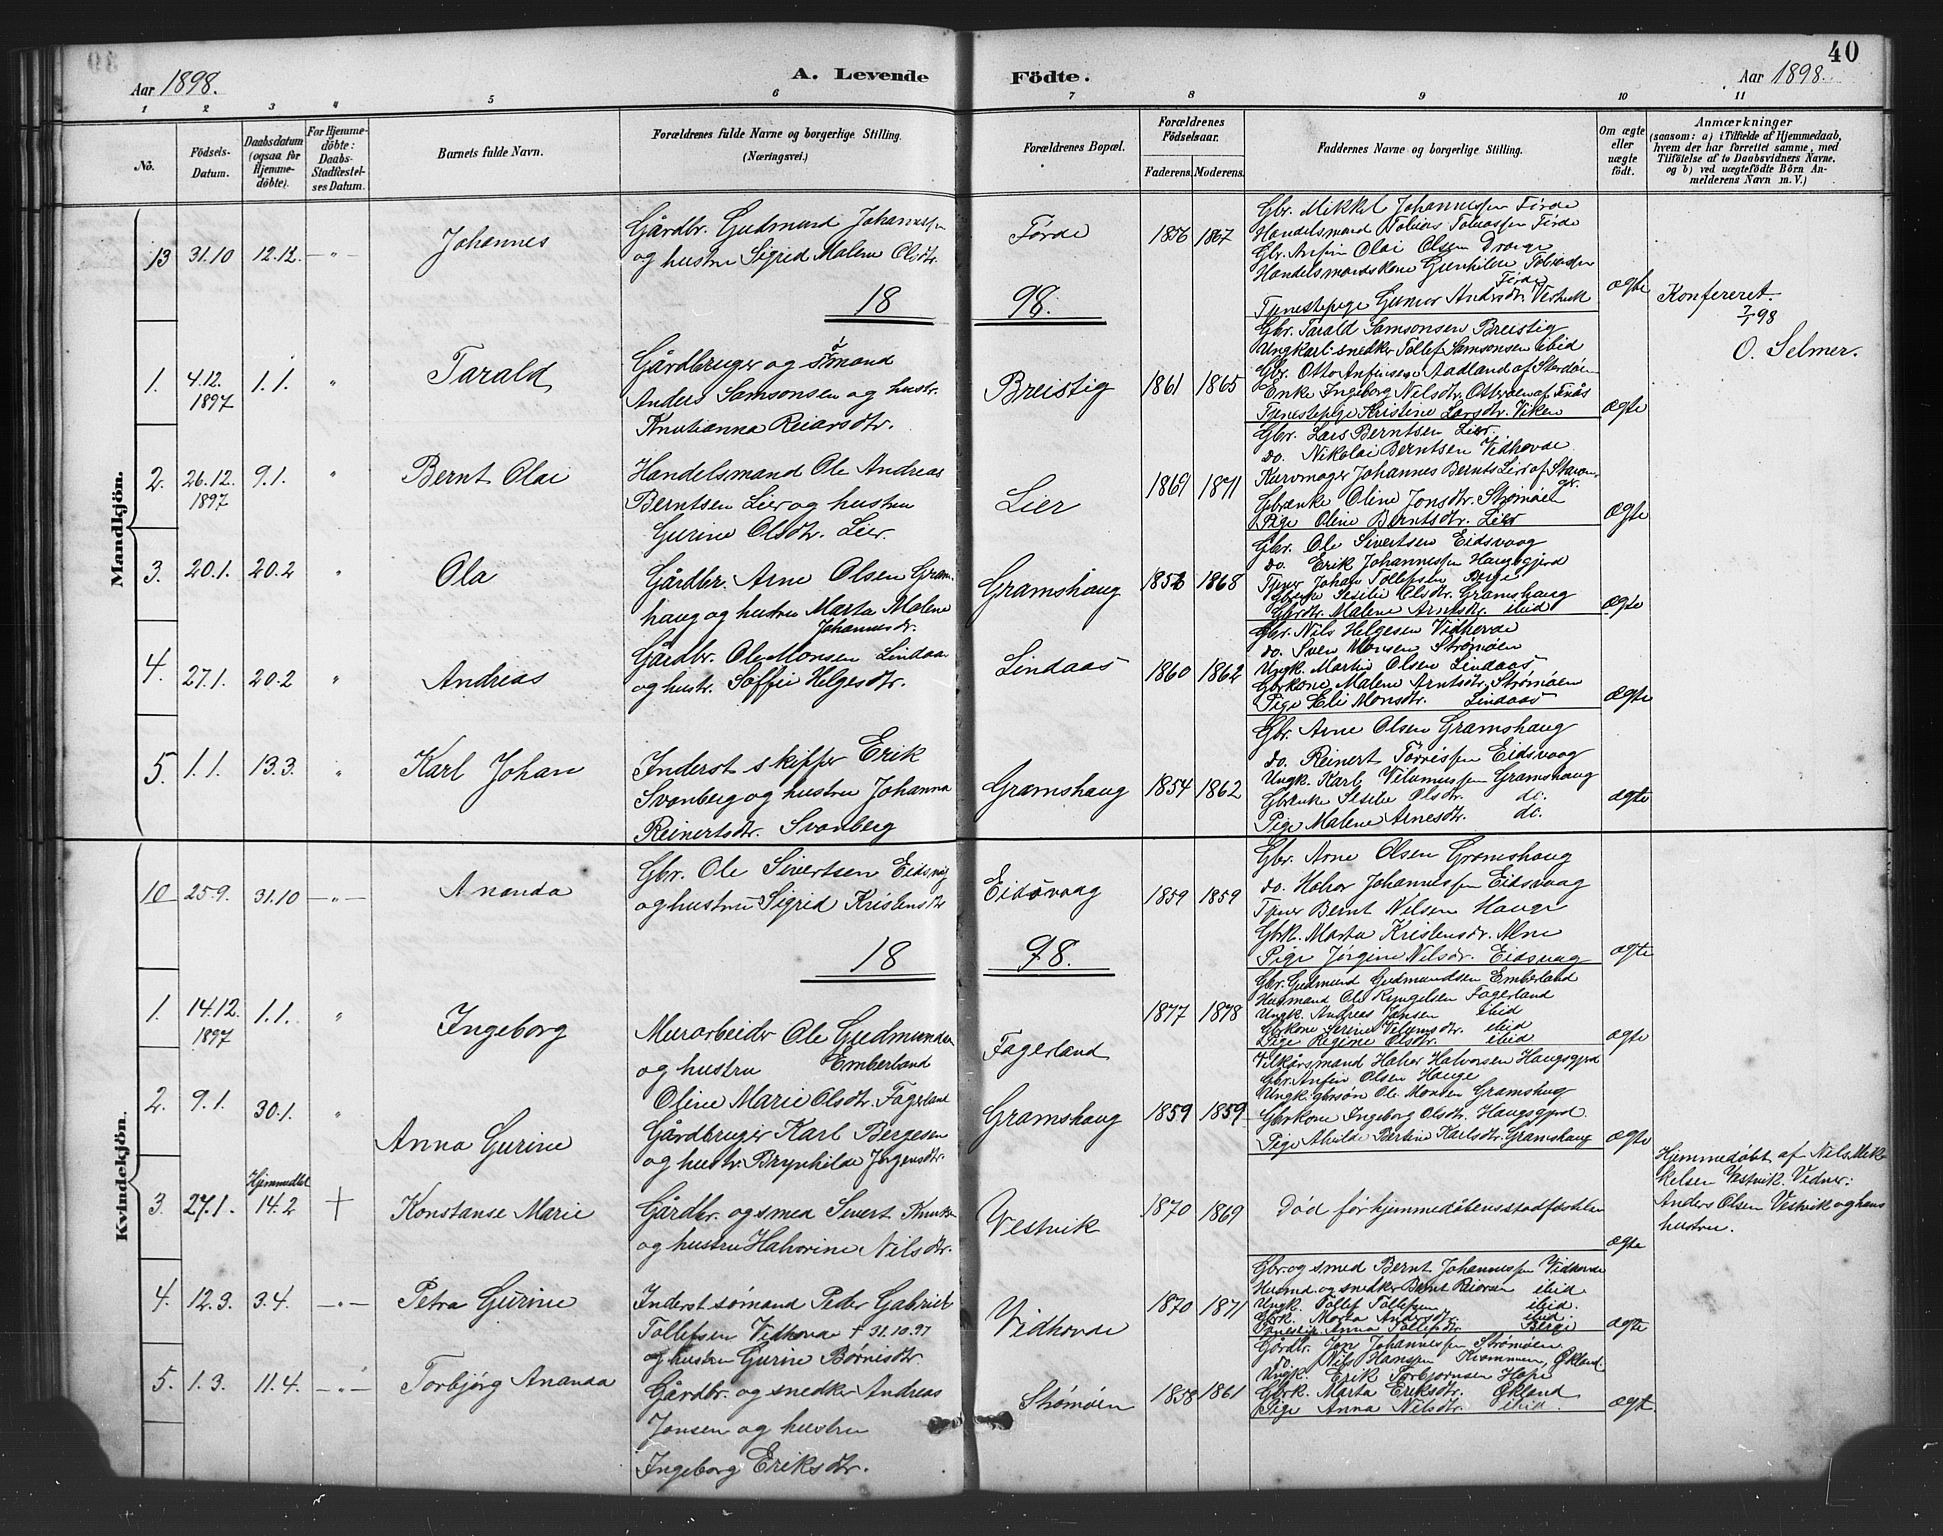 40
Aar 1898.
A. Levende Födte.
Aar 1898.
1 2 3 " 5 6 7 8 9 10 11
No.
Födsels-Datum.
Daabsdatum (ogsaa for Hjemme-döbte).
For Hjemme-döbte: Daabs-Stadfæstel-ses Datum.
Barnets fulde Navn.
Forældrenes fulde Navne og borgerlige Stilling.
(Næringsvei.)
Forældrenes Bopæl.
Forældrenes Födselsaar.
Faderens. Moderens.
Faddernes Navne og borgerlige Stilling.
Om ægte eller uægte födt.
Anmærkninger
(saasom: a) i Tilfælde af Hjemmedaab,
hvem der har forrettet samme, med
Tilföielse af to Daabsvidners Navne,
og b) ved uægtefödte Börn An-
melderens Navn m. V.)
Mandkjön.
13 31.10 12.12. — " —
Johannes
Gårdbr. Gudmund Johannessen
og hustru Sigrid Malene Olsdtr.
Førde
1856 1867
Gbr. Mikkel Johannessen Førde
Handelsmand Tobias Tobiassen Førde
Gbr. Anfin Olai Olsen
Handelsmandskone Gunhilde Tobiassen
Førde
Tjenestepige Gunvor Andersdtr. Vestvik
ægte
18 98.
Konfereret.
7/1 98
O. Selmer.
1. 4.12. 1897 1.1. "
Tarald
Gårdbruger og sømand
Anders Samsonsen og hustr.
Knutianna Reiarsdtr.
Breistig
1861 1865
Gbr. Tarald Samsonsen Breistig
Ungkarl snedker Tollef Samsonsen ibid
Gbr. Otto Anfinsen Aadland af Stordøen
Enke Ingeborg Nilsdtr. af Finås
Tjenestepige Kristine Larsdtr. Viken
ægte
2. 26.12. 1897 9.1. "
Bernt Olai
Handelsmand Ole Andreas
Berntsen Lier og hustru
Gurine Olsdtr. Lier.
Lier
1869 1871
Gbr. Lars Berntsen Lier.
do. Nikolai Berntsen Vidhovde
Kurvmager Johannes Bernts. Lier af
Gbrenke Oline Jonsdtr. Strømøen
Pige Oline Berntsdtr. Lier
ægte
3. 20.1. 20.2 "
Ola
Gårdbr. Arne Olsen Grams-
haug og hustru Marta Malene
Johannesdr.
Gramshaug
1868
Gbr. Ole Sivertsen Eidsvaag
do. Erik Johannessen Haugsgjerd
Tjener Johan Tollefsen Berge
Sesilie Olsdtr. Gramshaug
Malene Arnesdtr. ibid
ægte
4. 27.1. 20.2 "
Andreas
Gårdbr. Ole Monsen Lindaas
og hustr. Soffie Helgesdtr.
Lindaas
1860 1862
Gbr. Nils Helgesen Vidhovde
do. Sven Monsen Strømøen
Ungk. Martin Olsen Lindaas
Gbrkone Malene Arntsdtr. Strømøen
Pige Eli Monsdtr. Lindaas
ægte
5. 1.1. 13.3. "
Karl Johan
Inderst skipper Erik
Svanberg og hustru Johanna
Reinertsdtr. Svanberg
Gramshaug
1854 1862
Gbr. Arne Olsen Gramshaug
do. Reinert Tørrissen Eidsvaag
Ungk. Karl Vilumsen Gramshaug
Gbrenke Sesilie Olsdtr. do.
Pige Malene Arnesdtr. do.
ægte
Kvindekjön.
10 25.9. 31.10 — " —
Ananda
Gbr. Ole Sivertsen Eidsvåg
og hustru Sigrid Kristensdtr
Eidsvaag
1859 1859
Gbr. Arne Olsen Gramshaug
do. Halvor Johannessen Eidsvaag
Tjener Bernt Nilsen Hauge
Gbrk. Marta Kristensdr. Alne
Pige Jørgine Nilsdr. Eidsvaag
ægte
18 98.
1. 14.12. 1897 1.1. "
Ingeborg
Murarbeider Ole Gudmundsen
og hustru Emberland
Oline Marie Olsdtr. Fagerland
Fagerland
1877 1878
Gbr. Gudmund Gudmundsen Emberland
Husmand Ole Fagerland
Ungk. Andreas Jansen ibid
Gbrkone Serine Vilumsdtr. ibid
Pige Regine Olsdtr. ibid
ægte
2. 9.1. 30.1. "
Anna Gurine
Gårdbruger Karl Bergesen
og hustr. Brynhilde Jørgensdtr.
Gramshaug
1859 1859
Vilkårsmand Halvor Halvorsen Haugsgjerd
Gbr. Anfin Olsen Hauge
Ungk. gbrsøn Ole Monsen Gramshaug
Gbrkone Ingeborg Olsdtr. Haugsgjerd
Pige Alvilde Bertine Karlsdtr. Gramshaug
ægte
3. 27.1. Hjemmedøbt 14.2 +
Konstanse Marie
Gårdbr. og smed Sivert Knutsen
og hustru Halvorine Nilsdtr.
Vestvik
1870 1869
Død før hjemmedåbens stadfæstelse
ægte
Hjemmedøbt af Nils Mik-
kelsen Vestvik. Vidner:
Anders Olsen Vestvik og hans
hustru.
4. 12.3. 3.4. — " —
Petra Gurine
Inderst sømand Peder Gabriel
Tollefsen Vidhovde † 31.10.97
og hustru Gurine Børnisdtr.
Vidhovde
1870 1871
Gbr. og smed Bernt Johannessen Vidhovde
Husmd. og snedker Bernt Reiersen ibid
Ungk. Tollef Tollefsen ibid.
Gbrk. Marta Andersdtr. ibid.
Anna Tollefsdtr. Berge
ægte
5. 1.3. 11.4. — " —
Torbjørg Ananda
Gårdbr. og snedker Andreas
Jonsen og hustru
Ingeborg Eriksdtr.
Strømøen
1858 1861
Gårdbr. Jon Johannessen Strømøen
do. Nils Hanssen Kvammen, Økland
Ungk. Erik Torbjørnsen Hope
Gbrk. Marta Eriksdtr. Økland
Pige Anna Nilsdtr. ibid.
ægte.